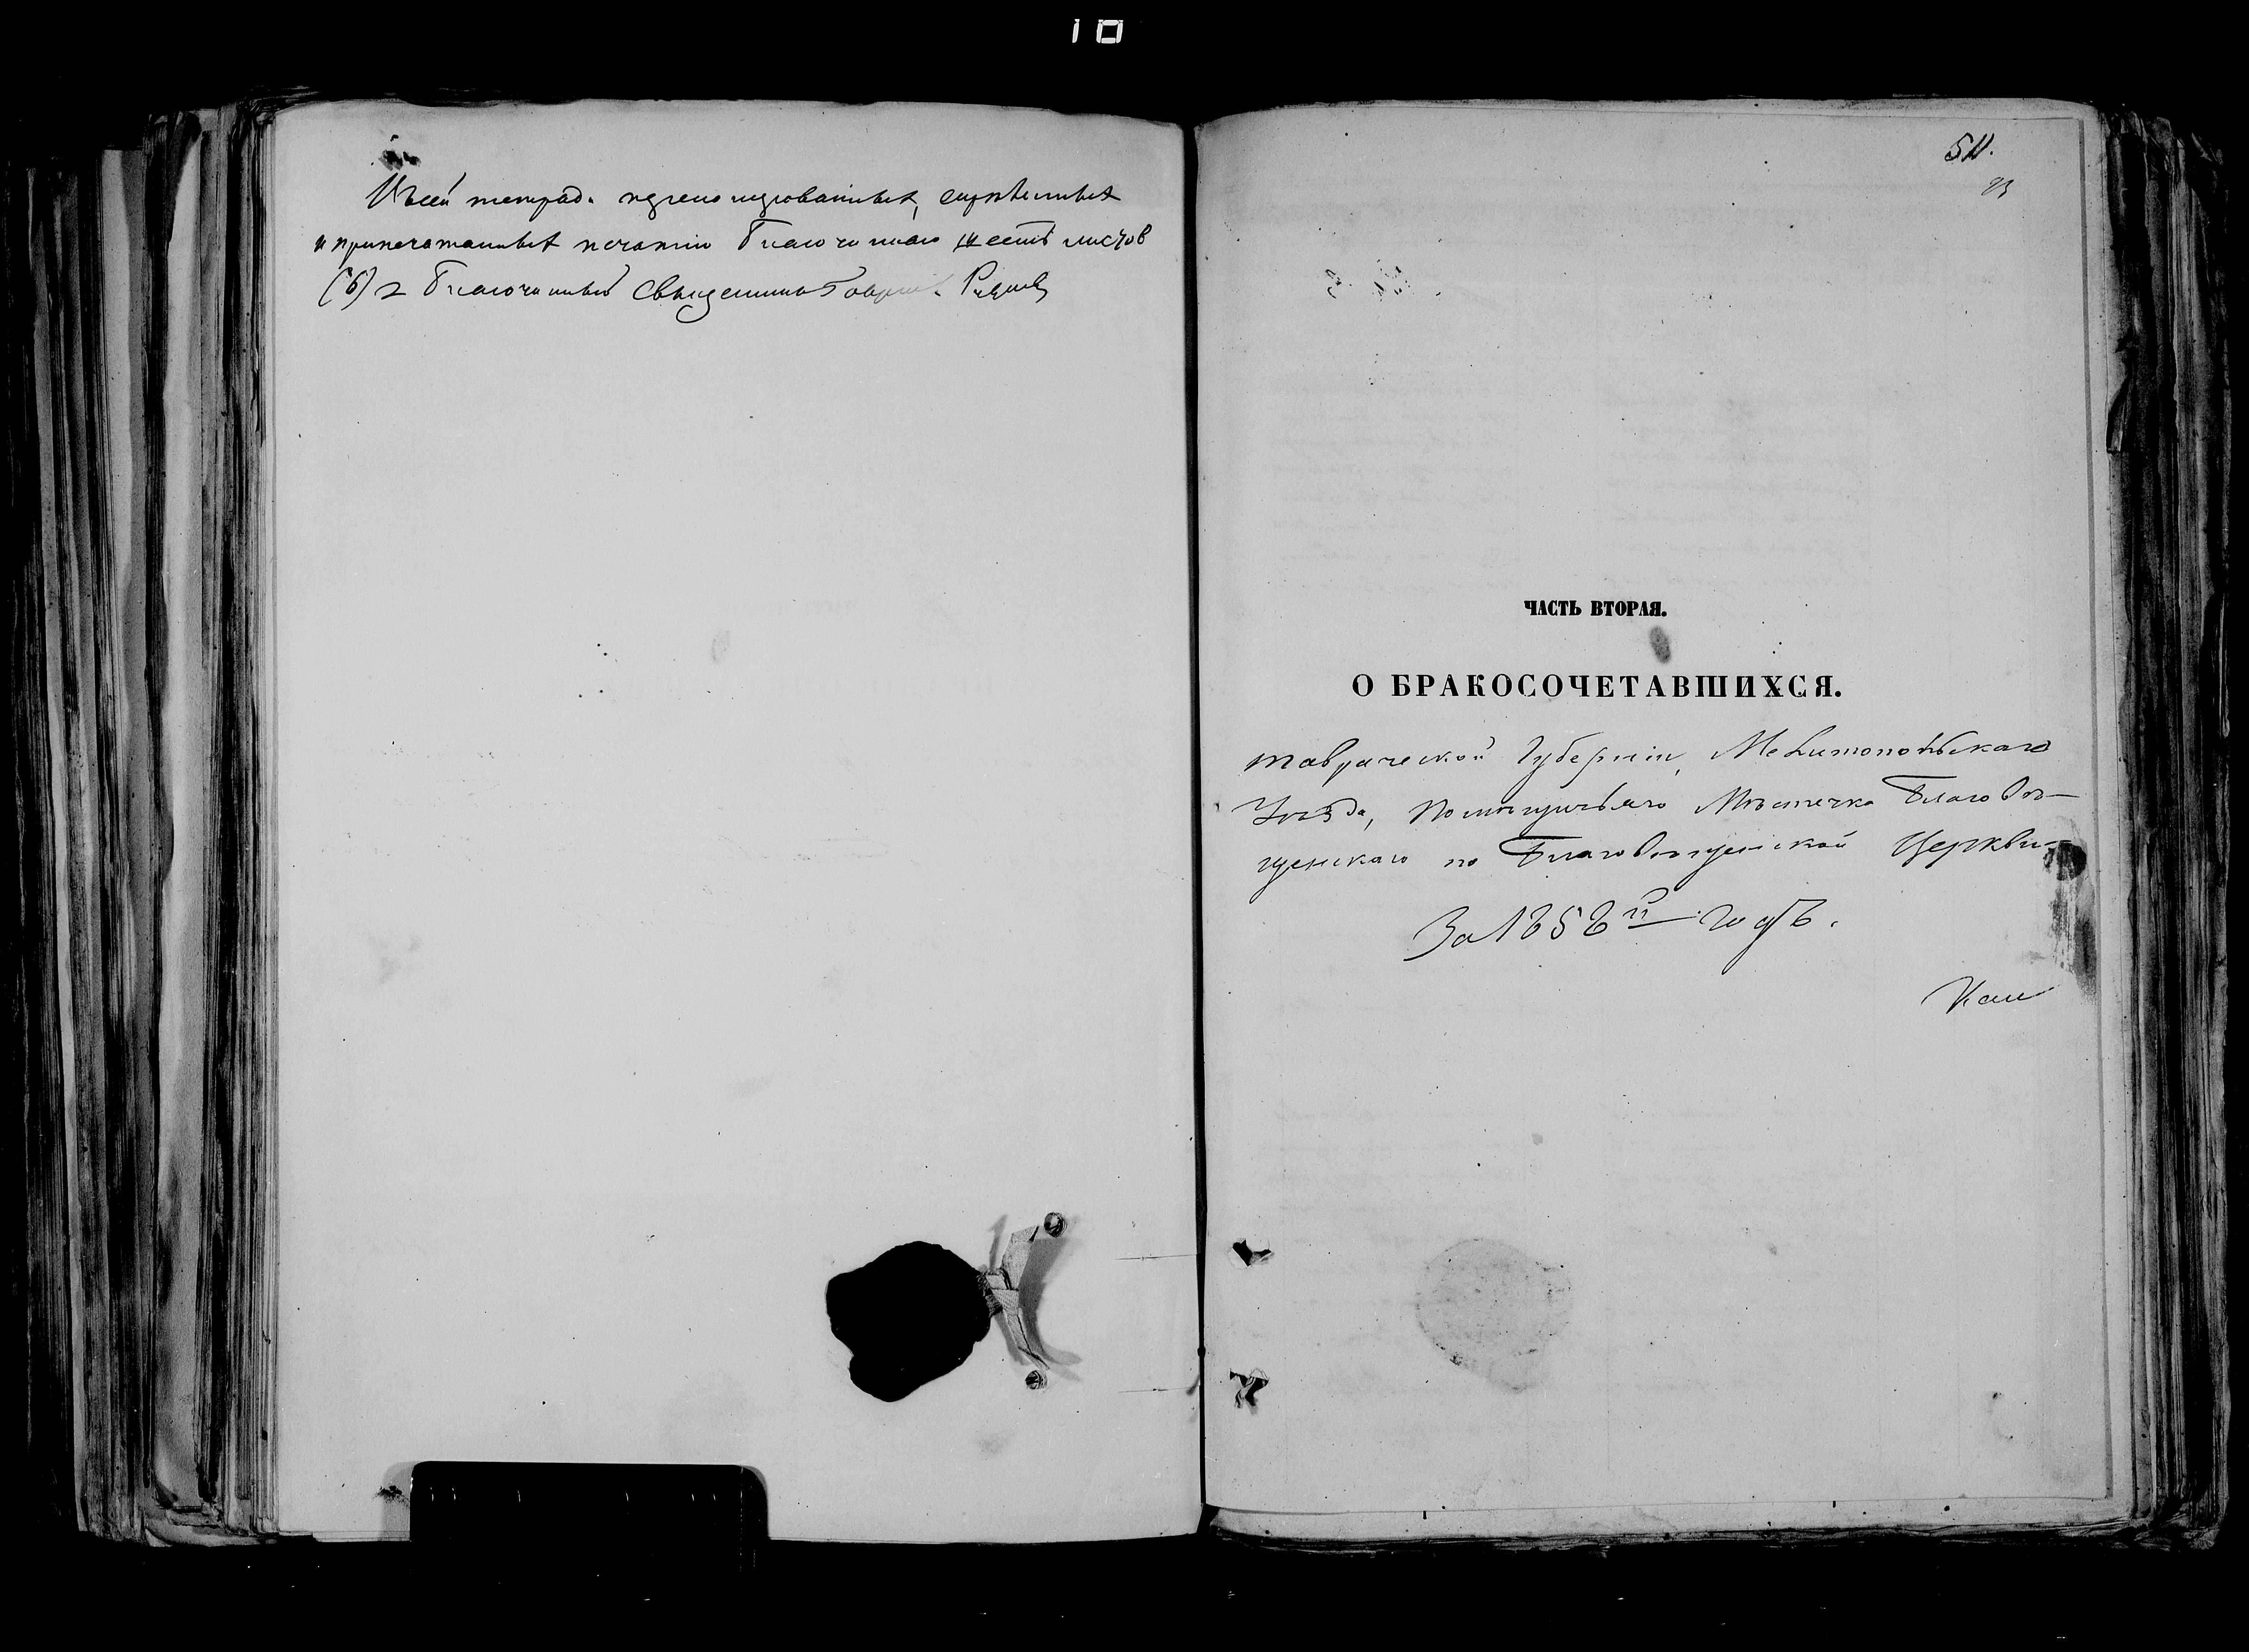 10
Въ сей тетради перенумерованныхъ, скрѣпленныхъ
и припечатанныхъ печатію Благочиннаго шесть листовъ
(6) Благочинный Священникъ
ЧАСТЬ ВТОРАЯ.
О БРАКОСОЧЕТАВШИХСЯ.
Таврической Губерніи, Мелитопольскаго
Уѣзда, Помѣщичьяго Мѣстечка Благовѣ-
щенскаго по Благовѣщенской Церкви
За 1858й годъ.